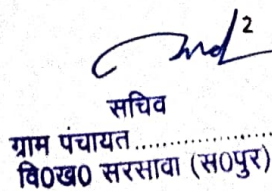 2
सचिव
ग्राम पंचायत......................
वि0ख0 सरसावा (स0पुर)